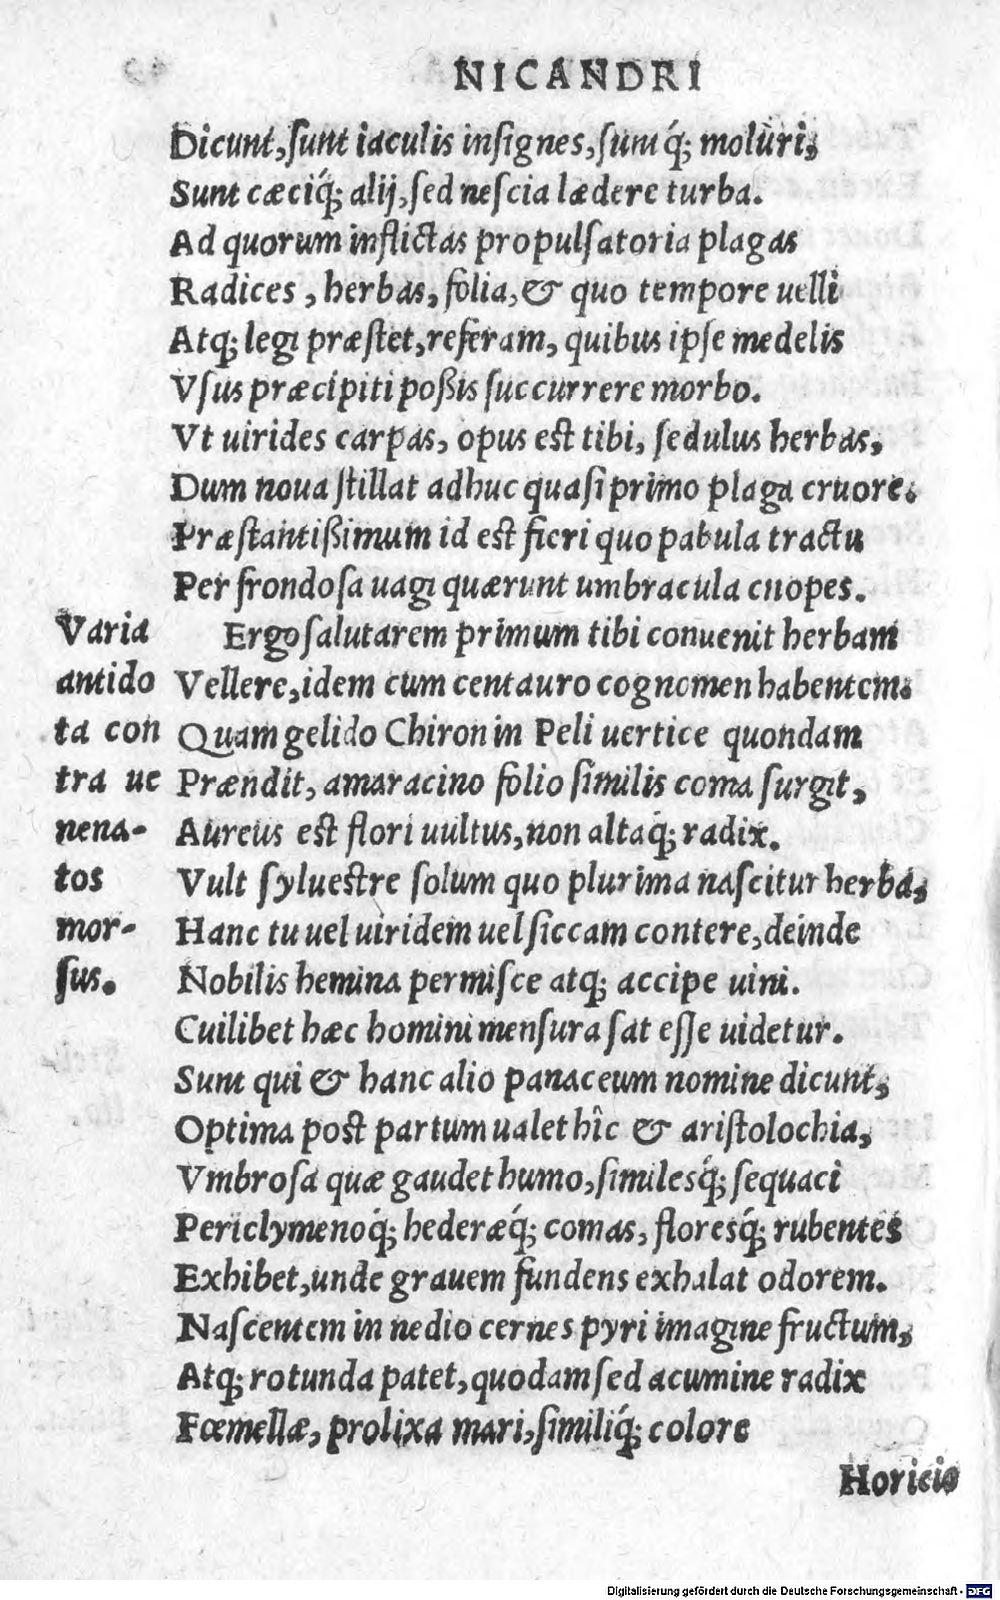 NICANDRI
Dicunt, ſunt iaculis inſignes, ſuntq́; moluri,
Sunt cæciq́; alij, ſed neſcia lædere turba.
Ad quorum inflictas propulſatoria plagas
Radices, herbas, folia, & quo tempore uelli
Atq; legi præſtet, referam, quibus ipſe medelis
Vſus præcipiti poßis ſuccurrere morbo.
Vt uirides carpas, opus est tibi, ſedulus herbas,
Dum noua ſtillat adhuc quaſi primo plaga cruore.
Præſtantißimum id est fieri quo pabula tractu
Per frondoſa uagi quærunt umbracula cnopes.
Varia
antido
ta con
tra ue
nena-
tos
mor-
ſus.
Ergo ſalutarem primum tibi conuenit herbam
Vellere, idem cum centauro cognomen habentem.
Quam gelido Chiron in Peli uertice quondam
Prændit, amaracino folio ſimilis coma ſurgit,
Aureus est flori uultus, non altaq́; radix.
Vult ſylueſtre ſolum quo plurima naſcitur herba,
Hanc tu uel uiridem uel ſiccam contere, deinde
Nobilis hemina permiſce atq; accipe uini.
Cuilibet hæc homini menſura ſat eſſe uidetur.
Sunt qui & hanc alio panaceum nomine dicunt,
Optima post partum ualet hîc & ariſtolochia,
Vmbroſa quæ gaudet humo, ſimilesq́; ſequaci
Periclymenoq́; hederæq́; comas, floresq́; rubentes
Exhibet, unde grauem fundens exhalat odorem.
Naſcentem in nedio cernes pyri imagine fructum,
Atq; rotunda patet, quodam ſed acumine radix
Fœmellæ, prolixa mari, ſimiliq́; colore
Horicio
Digitalisierung gefördert durch die Deutsche Forschungsgemeinschaft - DFG